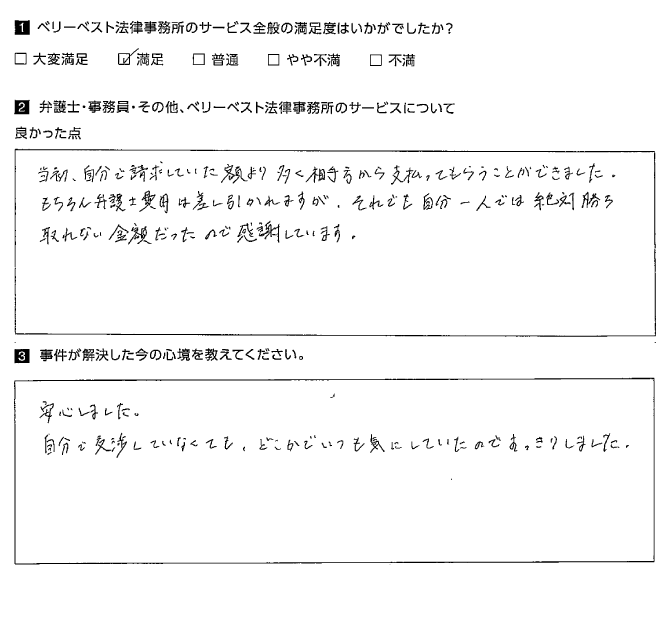 1 ベリーベスト法律事務所のサービス全般の満足度はいかがでしたか？
□ 大変満足 ☑ 満足 □ 普通 □ やや不満 □ 不満
2 弁護士・事務員・その他、ベリーベスト法律事務所のサービスについて
良かった点
当初、自分で請求していた額より多く相手方から支払ってもらうことができました。
もちろん弁護士費用は差し引かれますが、それでも自分一人では絶対勝ち
取れない金額だったので感謝しています。
3 事件が解決した今の心境を教えてください。
安心しました。
自分で交渉していなくても、どこかでいつも気にしていたのですっきりしました。